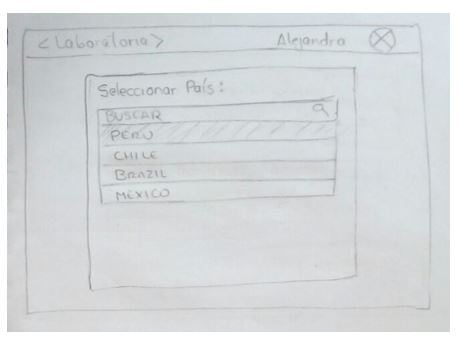 <Laboratoria> Alejandra
Seleccionar País:
BUSCAR
PERÚ
CHILE
BRAZIL
MÉXICO